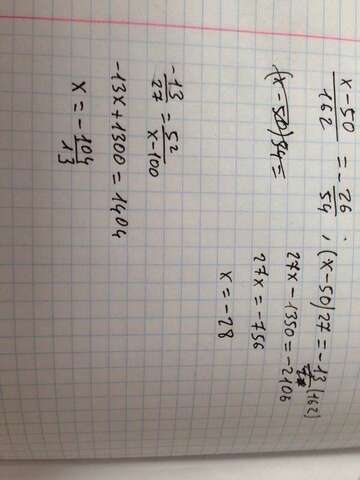 (x-50)/162 = -26/54 ; (x-50)27 = -13(162)
(x-50)54 =
27x - 1350 = -2106
27x = -756
x = -28
-13/27 = 52/(x-100)
-13x + 1300 = 1404
x = -104/13